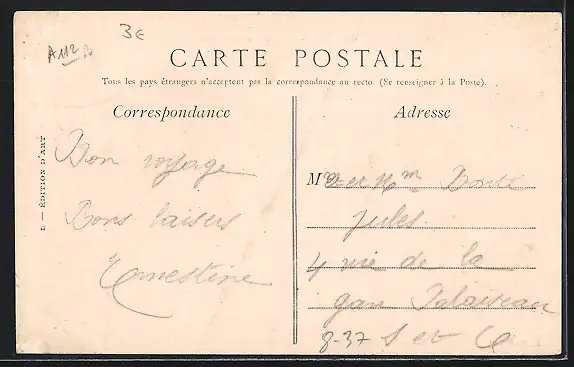 3€
A112
CARTE POSTALE
Tous les pays étrangers n'acceptent pas la correspondance au recto. (Se renseigner à la Poste).
Correspondance
Adresse
2. — ÉDITION D'ART
Bon voyage
Bons baisers
Ernestine
Mr et Mm
Jules
4 rue de la
gare Palaiseau
S et O